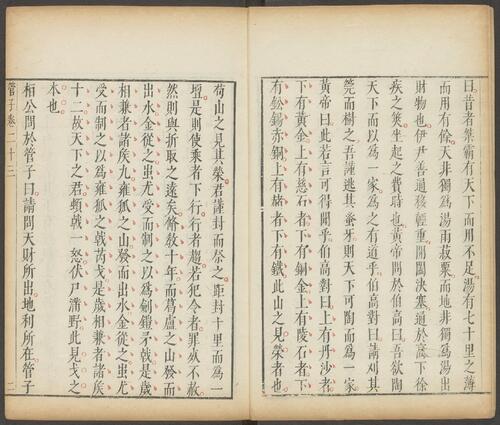 曰昔者桀霸有天下而用不足湯有七十里之薄
而用有餘天非獨爲湯雨菽粟而地非獨爲湯出
財物也伊尹善通移輕重開闔決塞通於高下徐
疾之筴坐起之費時也黃帝問於伯高曰吾欲陶
天下而以爲一家爲之有道乎伯高對曰請刈其
莞而樹之吾謹逃其蚤牙則天下可陶而爲一家
黃帝曰此若言可得聞乎伯高對曰上有丹沙者
下有黃金上有慈石者下有銅金上有陵石者下
有鉛錫赤銅上有赭者下有鐵此山之見榮者也
苟山之見其榮君謹封而祭之距封十里而爲一
壇是則使乘者下行行者趨若犯令者罪死不赦
然則與折取之遠矣脩敎十年而葛盧之山發而
出水金從之蚩尤受而制之以爲劍鎧矛戟是歲
相兼者諸矦九雍狐之山發而出水金從之蚩尤
受而制之以爲雍狐之戟芮戈是歲相兼者諸矦
十二故天下之君頓戟一怒伏尸滿野此見戈之
本也
桓公問於管子曰請問天財所出地利所在管子
管子卷二十三
二